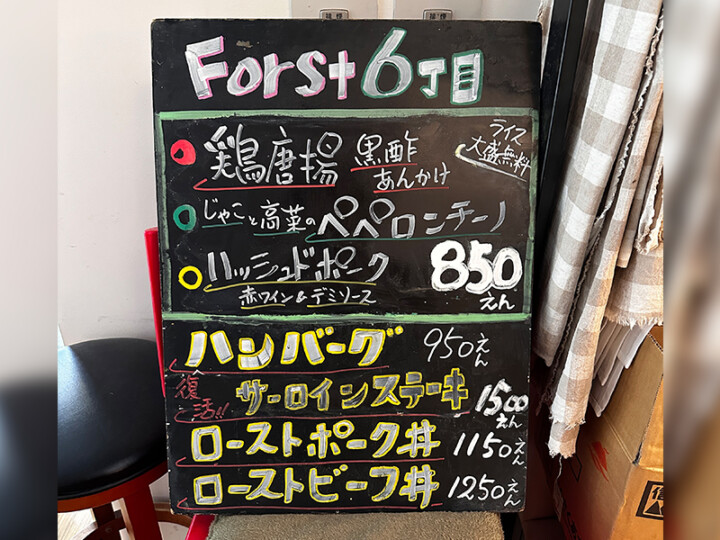 Forst 6丁目
鶏唐揚 黒酢あんかけ
ライス大盛無料
じゃこと高菜のペペロンチーノ
ハッシュドポーク
赤ワイン&デミソース
850えん
ハンバーグ 950えん
復活!! サーロインステーキ 1500えん
ローストポーク丼 1150えん
ローストビーフ丼 1250えん